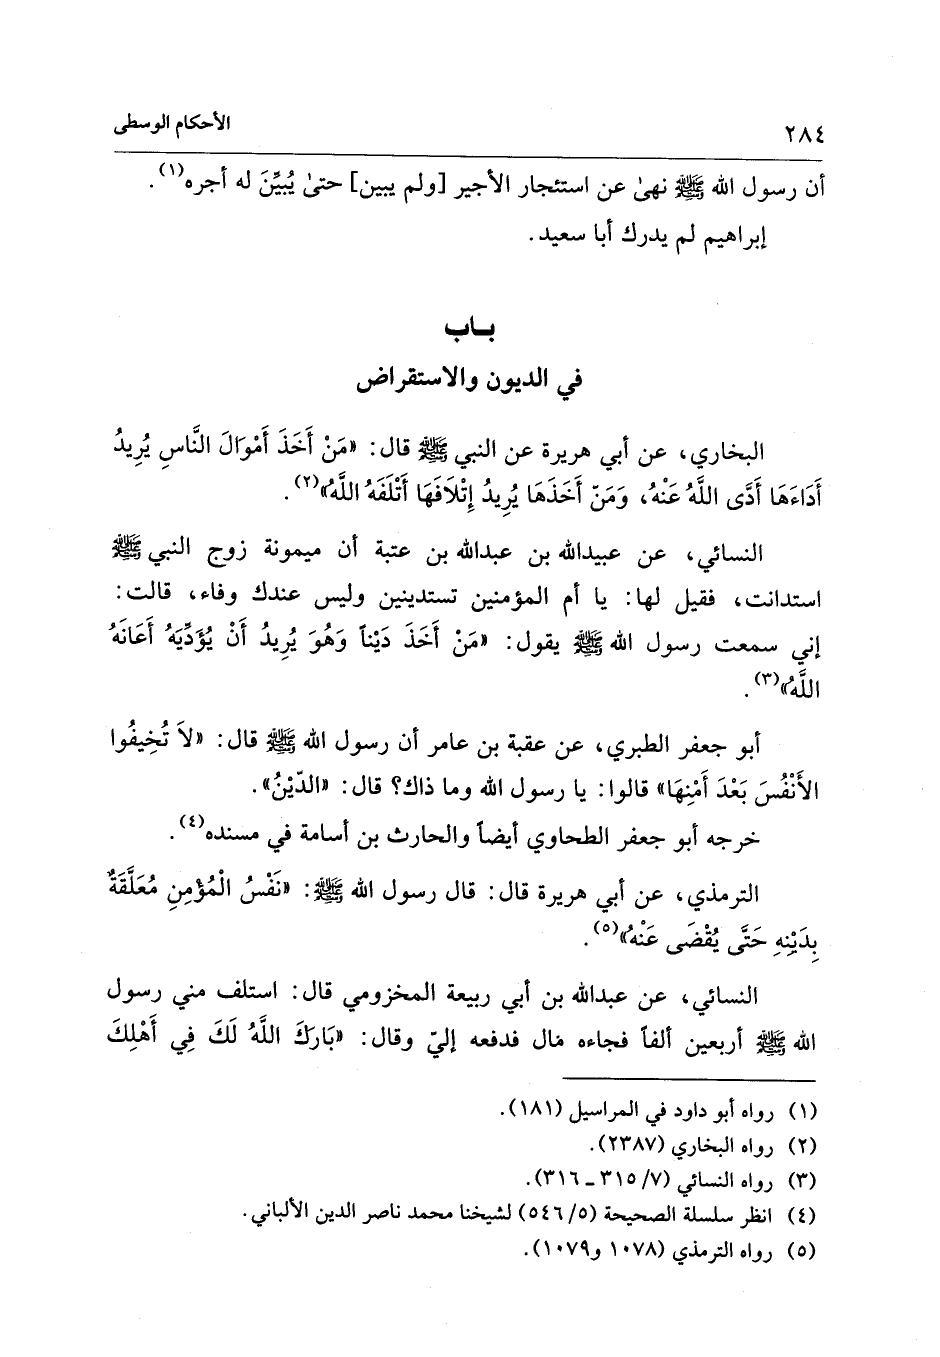 ٢٨٤ الأحكام الوسطى
أن رسول الله ﷺ نهىٰ عن استئجار الأجير [ولم يبين] حتىٰ يُبيِّنَ له أجره(١).
إبراهيم لم يدرك أبا سعيد.
بـاب
في الديون والاستقراض
البخاري، عن أبي هريرة عن النبي ﷺ قال: «مَنْ أَخَذَ أَمْوَالَ النَّاسِ يُرِيدُ
أَدَاءَهَا أَدَّى اللَّهُ عَنْهُ، وَمَنّ أَخَذَهَا يُرِيدُ إِتْلَافَهَا أَتْلَفَهُ اللَّهُ»(٢).
النسائي، عن عبيدالله بن عبدالله بن عتبة أن ميمونة زوج النبي ﷺ
استدانت، فقيل لها: يا أم المؤمنين تستدينين وليس عندك وفاء، قالت:
إني سمعت رسول الله ﷺ يقول: «مَنْ أَخَذَ دَيْناً وَهُوَ يُرِيدُ أَنْ يُؤَدِّيَهُ أَعَانَهُ
اللَّهُ»(٣).
أبو جعفر الطبري، عن عقبة بن عامر أن رسول الله ﷺ قال: «لاَ تُخِيفُوا
الأَنْفُسَ بَعْدَ أَمْنِهَا» قالوا: يا رسول الله وما ذاك؟ قال: «الدّيْنُ».
خرجه أبو جعفر الطحاوي أيضاً والحارث بن أسامة في مسنده(٤).
الترمذي، عن أبي هريرة قال: قال رسول الله ﷺ: «نَفْسُ الْمُؤْمِنِ مُعَلَّقَةٌ
بِدَيْنِهِ حَتَّى يُقْضَى عَنْهُ»(٥).
النسائي، عن عبدالله بن أبي ربيعة المخزومي قال: استلف مني رسول
الله ﷺ أربعين ألفاً فجاءه مال فدفعه إليّ وقال: «بَارَكَ اللَّهُ لَكَ فِي أَهْلِكَ
(١) رواه أبو داود في المراسيل (١٨١).
(٢) رواه البخاري (٢٣٨٧).
(٣) رواه النسائي (٧/ ٣١٥ ـ ٣١٦).
(٤) انظر سلسلة الصحيحة (٥/ ٥٤٦) لشيخنا محمد ناصر الدين الألباني.
(٥) رواه الترمذي (١٠٧٨ و١٠٧٩).